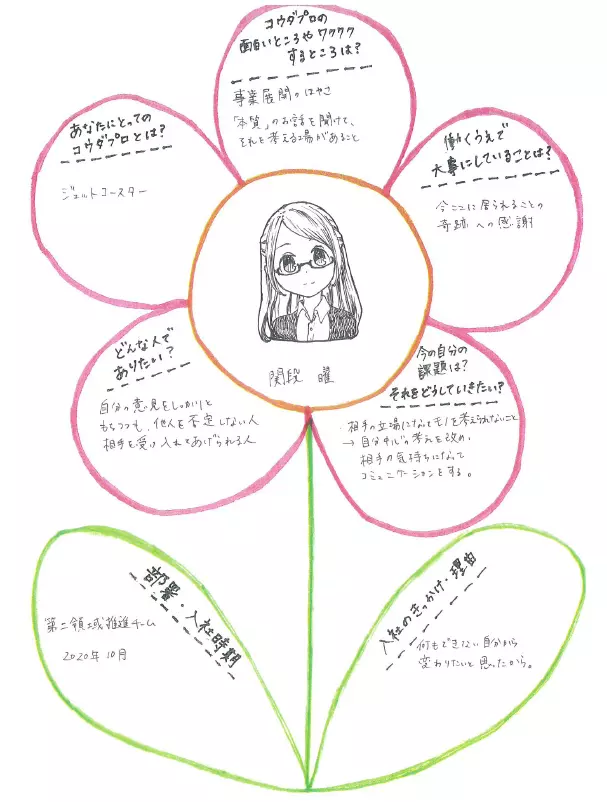 コウダプロの
面白いところやワクワク
するところは?
事業展開のはやさ
「本質」のお話を聞けて、
それを考える場があること
あなたにとっての
コウダプロとは?
ジェットコースター
働くうえで
大事にしていることは?
今ここに居られることの
奇跡への感謝
どんな人で
ありたい?
自分の意見をしっかりと
もちつつも、他人を否定しない人
相手を受け入れてあげられる人
関段 曜
今の自分の
課題は?
それをどうしていきたい?
・相手の立場になってモノを考えられないこと
→自分よがりの考えを改め、
相手の気持ちになって
コミュニケーションをする。
部署・入社時期
第二領域推進チーム
2020年10月
入社のきっかけ・理由
何もできない自分から
変わりたいと思ったから。